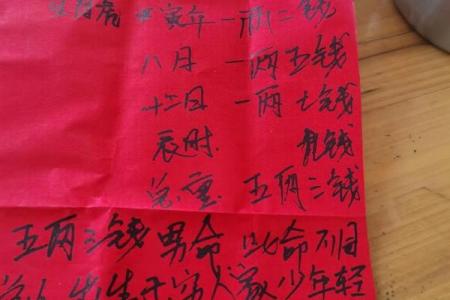 虎 寅年 一两二钱
八月 一两五钱
十二日 一两七钱
辰时 九钱
总重 五两三钱
五两三钱 男命 此命不同
生于 人家 少年轻